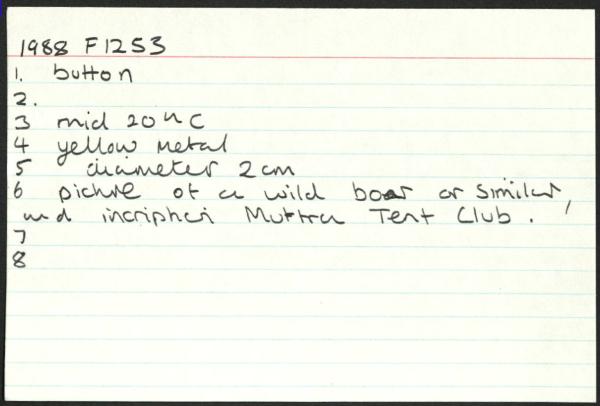 1988 F1253
1. button
2.
3 mid 20th C
4 yellow metal
5 diameter 2cm
6 picture of a wild boar or similar,
and incription Muttra Tent Club.
7
8